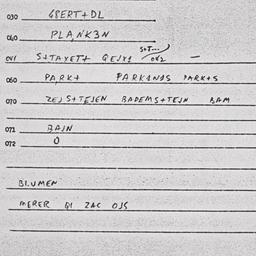 030 GBERT+DL
040 PLANK3N
041 S+TAXET+ GEJX1 042 —
060 PARK+ PARK1NOS PARK+S
070 ZEJS+TEJEN BADEMS+TEJN BAM
071 BAJN
072 O
BLUMEN
MERER GI ZAC OJS